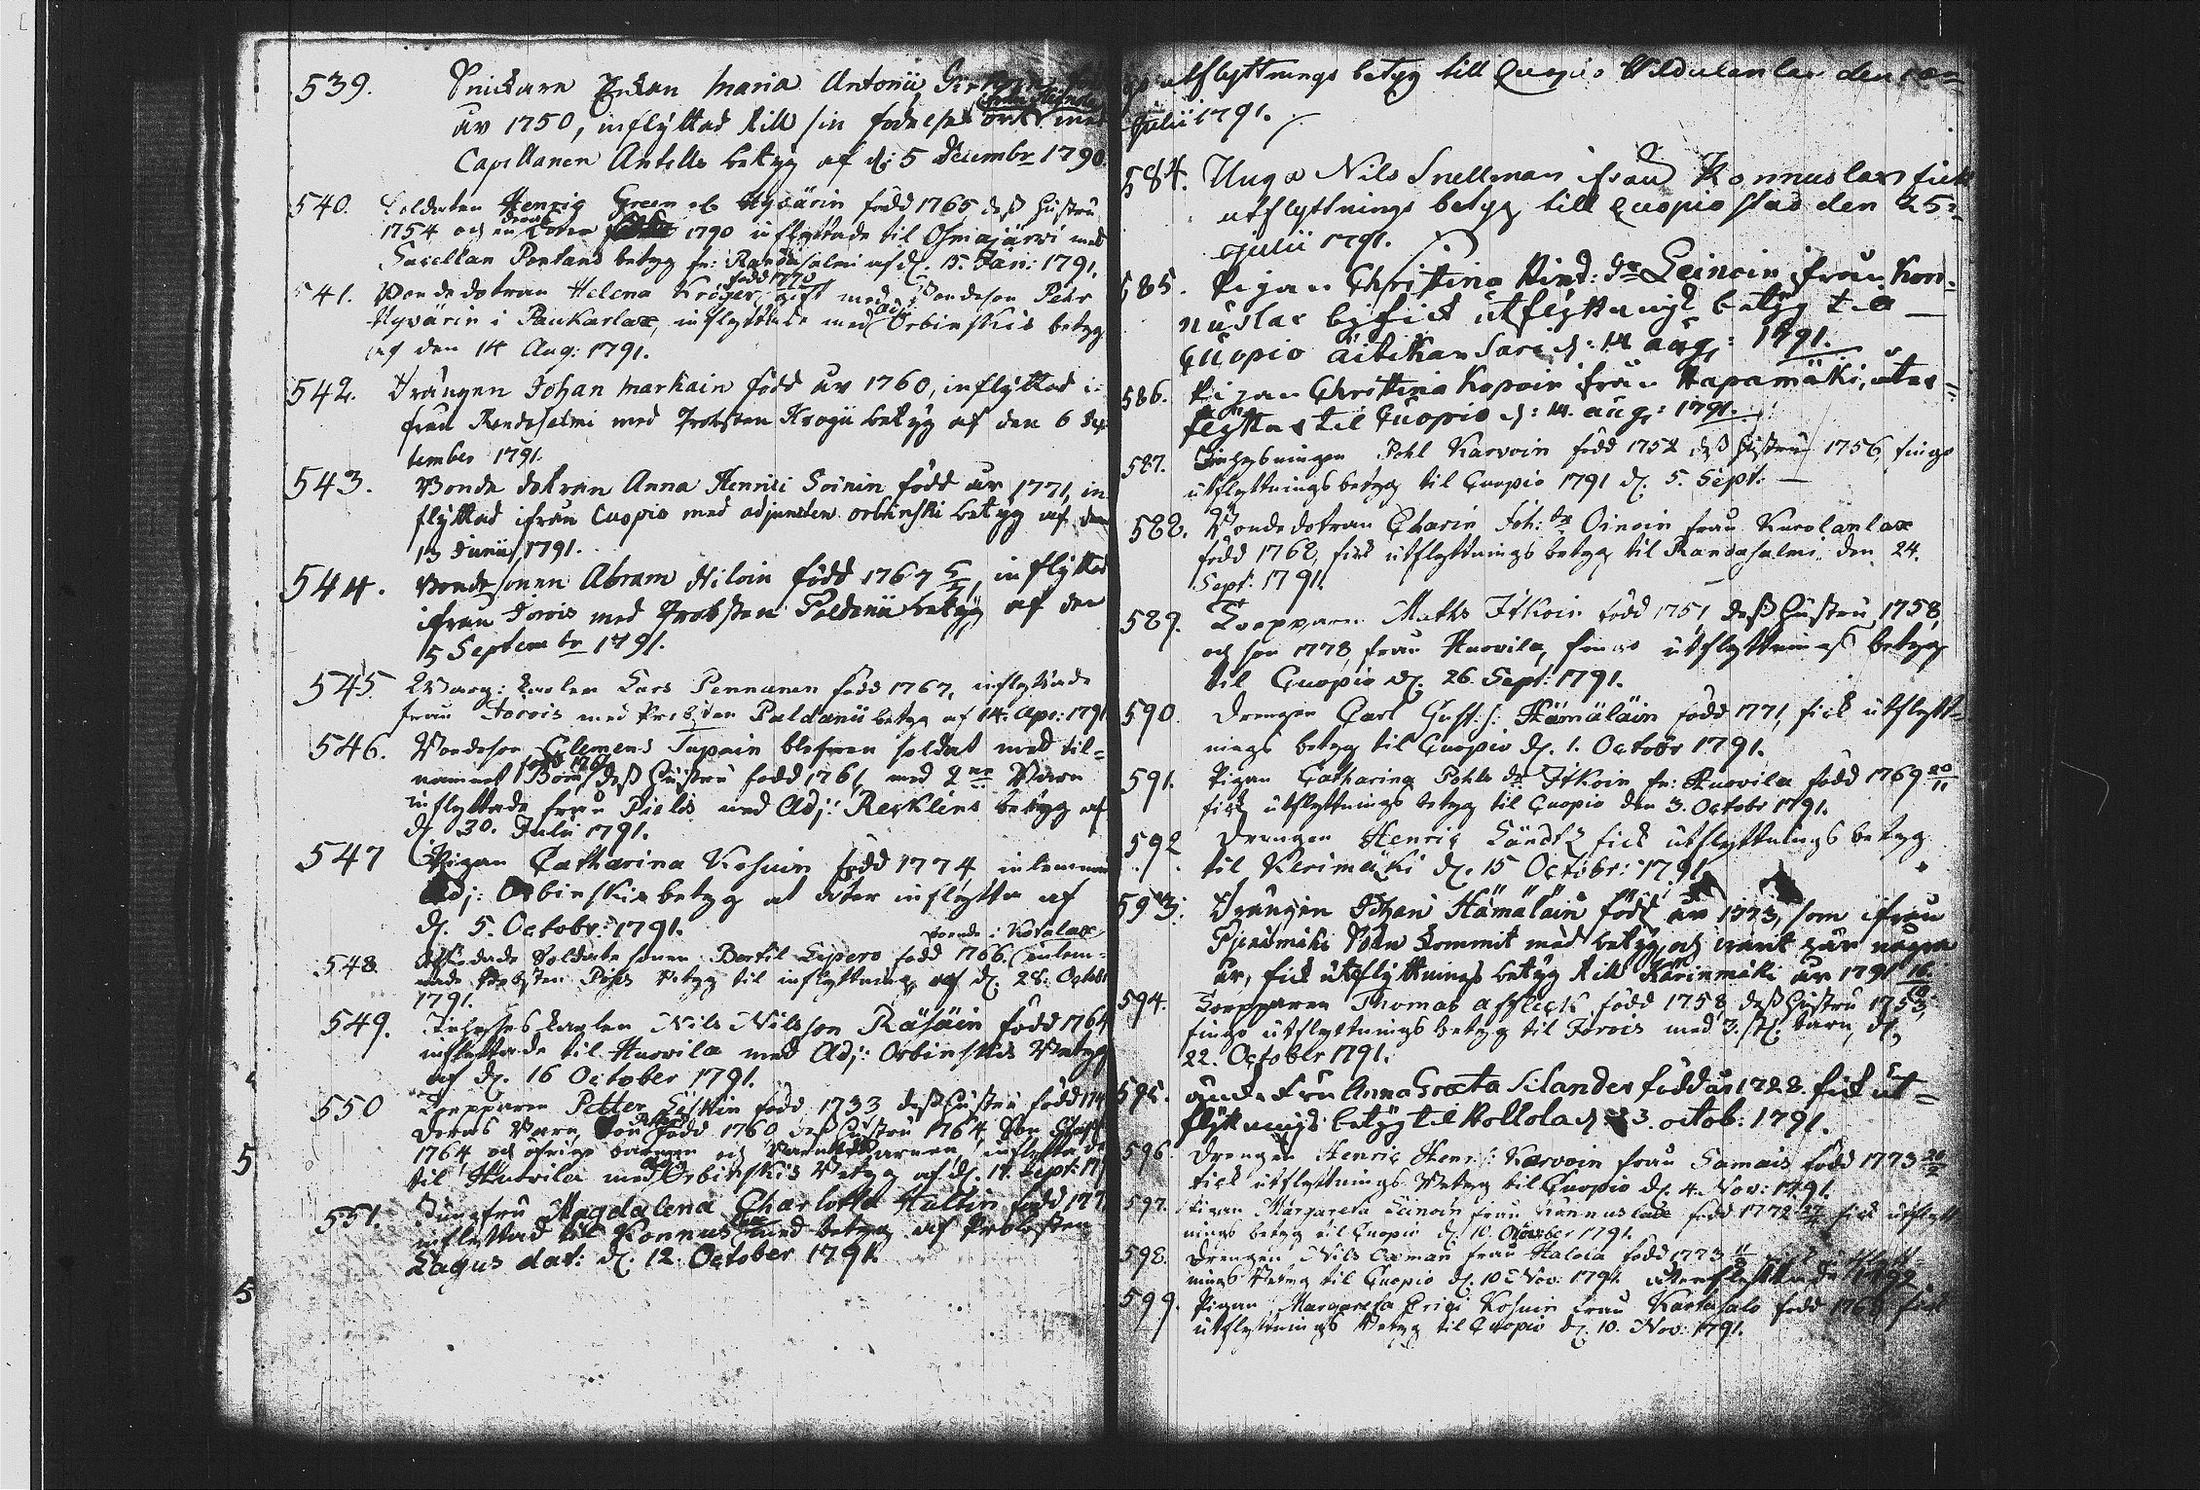 539. Snickare Enkan Maria Antonii
år 1750, inflyttad till sin födelse ort med
Capellanen Antells betyg af d: 5 Decembr 1790.
540. Soldaten Henric Green el Hyvärin född 1765, dess Hustru
1754 och en deras 1790 inflyttade til Osmajärvi med
Sacellan Pontans betyg fr: Randasalmi af d. 15. Jan: 1791.
541. Bondedotran Helena Kröger, född 1770 gift med Bondeson Petr
Hyvärin i Paukarlax, inflyttade med Adj: Orbinskis betyg
af den 14 Aug: 1791.
542. Drängen Johan Markain född år 1760, inflyttad i
från Randasalmi med Probsten Krogii betyg af den 6 Sep
tember 1791.
543. Bonde dotran Anna Henrici Soinin född år 1771, in
flyttad ifrån Cuopio med adjuncten Orbinski betyg af den
13 Junii 1791.
544. Bondesonen Abram Hiloin född 1767 5/4, inflyttad
ifrån Jorois med Probsten Poldanii betyg af den
5 Septembr 1791.
545. Lars Pennanen född 1767, inflyttade
från Jorois med Probsten Paldanii betyg af 14. Apr: 1791
546. Bondeson Clemens Tupain blefven soldat med til-
namnet Bom, dess Hustru född 1761, med 2ne Barn
inflyttade från Pielis med Adj: Recklins betyg af
d. 30. Julii 1791.
547 Pigan Catharina Kosuin född 1774, inlemnade
Adj: Orbinskis betyg at åter inflytta af
d. 5. Octobr: 1791.
boende i Kovalax
548. Afskedade Soldate sonen Bertil Lipero född 1766. inlem-
nade Probsten betyg til inflyttning af d. 28. Octobr
1791.
549. Inhyses karlen Nils Nilsson Räsäin född 1764
inflyttade til Huovila med Adj: Orbinskis Betyg
af d. 16 October 1791.
550 Torpparen Petter född 1733, dess Hustru född
Deras Barn, Son född 1760, dess Hustru 1764, Son
1764 och öfrige barnen och Barnabarnen, inflyttade
til Huovila med Adj: Orbinskis Betyg af d. 17. Sept: 17
551. Jungfru Magdalena Charlotta Haltin född 177
inflyttad till Konnuslax med betyg af Probsten
Lagus dat: d. 12. October 1791.
utflyttnings betyg till Quopio den
Julii 1791.
584. Unga Nils Snellman från Konnuslax fick
utflyttnings betyg till Quopio stad den 25:
Julii 1791.
585. Pigan Christina Pind: dr Leinoin från Kon-
nuslax by fick utflyttnings betyg till
Quopio d: 14 aug: 1791.
586. Pigan Christina Kopoin från Hapamäki, utes
flyttas til Quopio d: 14. aug: 1791.
587. Inhysningen Pohl Karvoin född 1752 dess Hustru 1756, fingo
utflyttningsbetyg til Cuopio 1791 d. 5. Sept:
588. Bondedotran Charin Joh: dr Oinoin från Kurolanlax
född 1768, fick utflyttnings betyg til Randasalmi den 24.
Sept: 1791.
589. Torpparn Maths Itkoin född 1751, dess Hustru 1758,
och son 1778, från Huovila, fingo utflyttnings betyg
til Cuopio d. 26. Sept: 1791.
590. Drengen Carl Gust: s: Hämäläin född 1771, fick utflytt-
nings betyg til Cuopio d. 1. Octobr 1791.
591. Pigan Catharina Pohls dr Itkoin fr: Huovila född 1769 20/11
fick utflyttnings betyg til Cuopio den 3. Octobr 1791.
592 Drengen Henric fick utflyttnings betyg
til Kerimäki d. 15 Octobr: 1791
593. Drängen Johan Hämäläin född år 1773, som ifrån
kommit med betyg och varit här några
år, fick utflyttnings betyg till Kärinmäki år 1791 16/
594. Torpparen Thomas Affleck född 1758, dess Hustru 1753,
fingo utflyttningsbetyg til Jorois med 3. st. barn, d.
22. October 1791.
595. Anna Greta Silander född år 1728. fick ut-
flyttnings betyg til Kollola d 3. octob: 1791.
596. Drengen Henric Henr: s: Karvoin från Samais född 1773 20/2
fick utflyttnings Betyg til Cuopio d. 4. Nov: 1791.
597. Pigan Margareta Leinoin från Konnuslax född 1772 27/ fick utflytt
nings betyg til Cuopio d. 10. November 1791.
598. Drengen Nils från född 1773 fick utflytt
nings Betyg til Cuopio d. 10 Nov: 1791. återflyttade 1792
599. Pigan Margareta Erici Kosuin från Kartusalo född 1768 fick
utflyttnings Betyg til Cuopio d. 10. Nov: 1791.
5
5